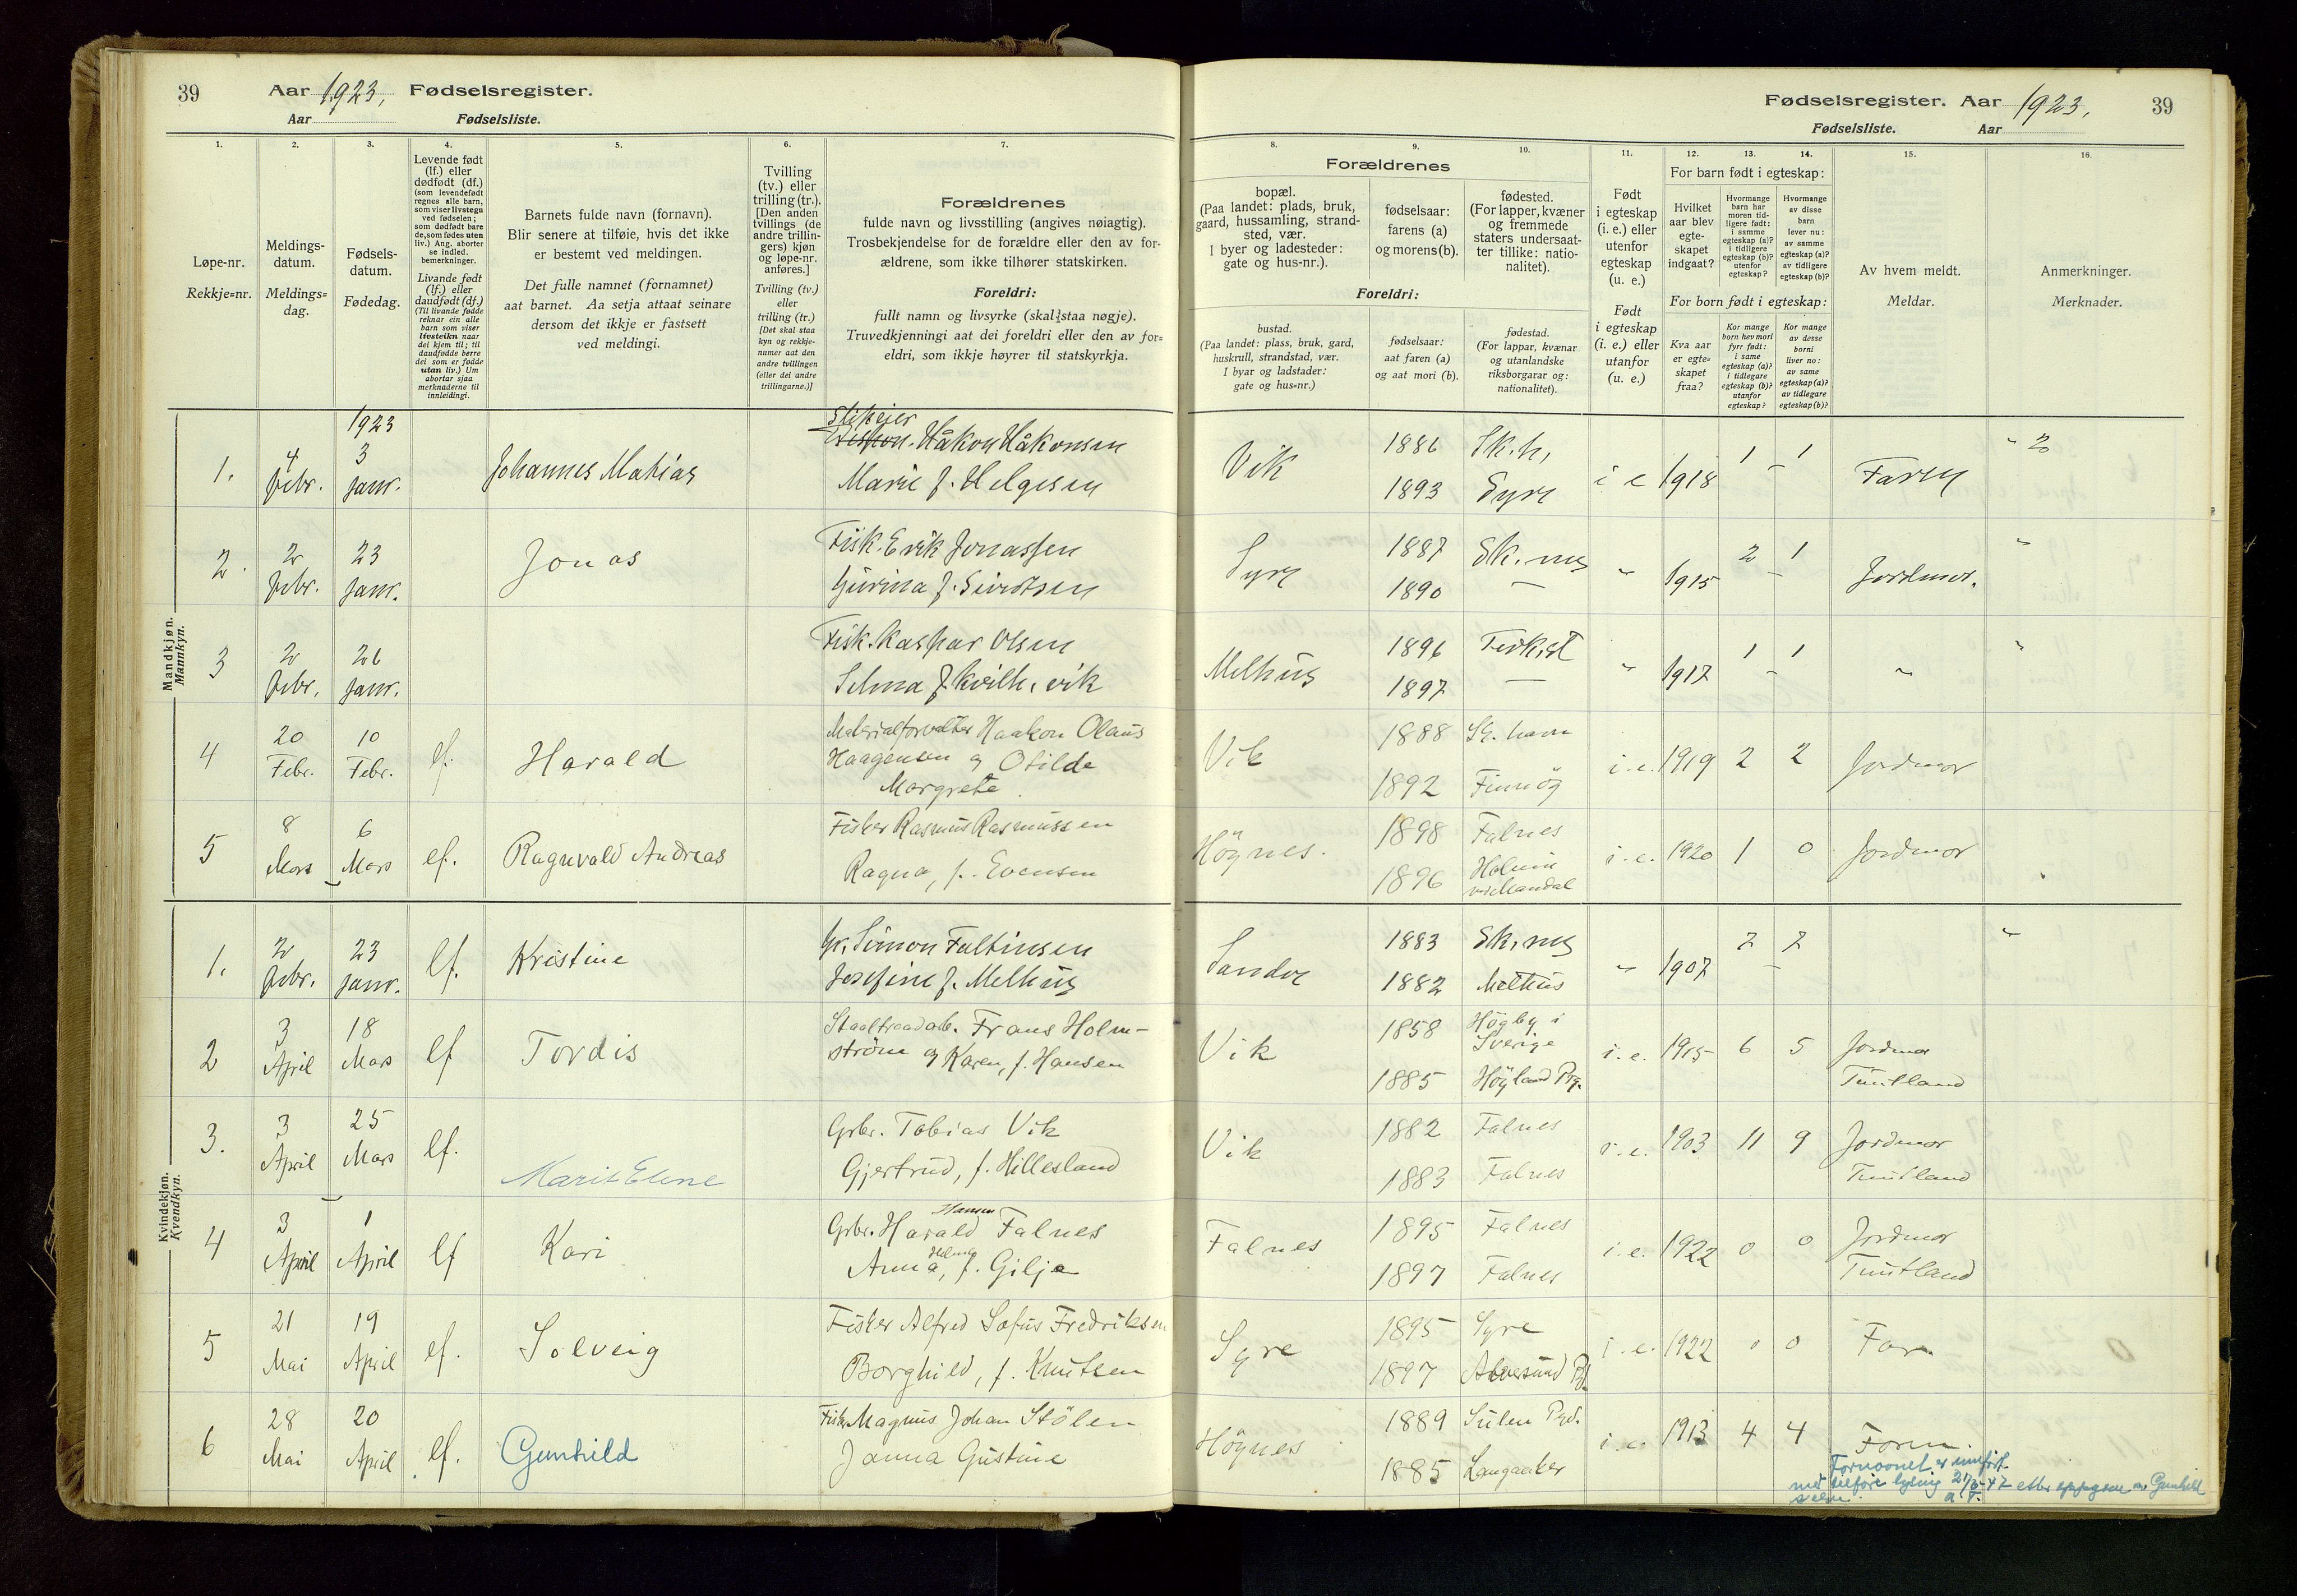 39 Aar 1923, Fødselsregister.
Aar Fødselsliste.
Fødselsregister. Aar 1923. 39
Fødselsliste. Aar
1.
Løpe-nr.
Rekkje-nr.
2.
Meldings-
datum.
Meldings-
dag.
3.
Fødsels-
datum.
Fødedag.
4.
Levende født
(lf.) eller
dødfødt (df.)
(som levendefødt
regnes alle barn,
som viser livstegn
ved fødselen;
som dødfødt bare
de, som fødes uten
liv.) Ang. aborter
se indled.
bemerkninger.
Livande født
(lf.) eller
daudfødt (df.)
(Til livande fødde
reknar ein alle
barn som viser
livsteikn naar
dei kjem til; til
daudfødde berre
dei som er fødde
utan liv.) Um
abortar sjaa
merknaderne til
innleidingi.
5.
Barnets fulde navn (fornavn).
Blir senere at tilføie, hvis det ikke
er bestemt ved meldingen.
Det fulle namnet (fornamnet)
aat barnet. Aa setja attaat seinare
dersom det ikkje er fastsett
ved meldingi.
6.
Tvilling
(tv.) eller
trilling (tr.).
[Den anden
tvillings (de
andre trillin-
gers) kjøn
og løpe-nr.
anføres.]
Tvilling (tv.)
eller
trilling (tr.)
[Det skal staa
kyn og rekkje-
numer aat den
andre tvillingen
(eller dei andre
trillingarne.)]
7.
Forældrenes
fulde navn og livsstilling (angives nøiagtig).
Trosbekjendelse for de forældre eller den av for-
ældrene, som ikke tilhører statskirken.
Foreldri:
fullt namn og livsyrke (skal staa nøgje).
Truvedkjenningi aat dei foreldri eller den av for-
eldri, som ikkje høyrer til statskyrkja.
8.
Forældrenes
bopæl.
(Paa landet: plads, bruk,
gaard, hussamling, strand-
sted, vær.
I byer og ladesteder:
gate og hus-nr.).
Foreldri:
bustad.
(Paa landet: plass, bruk, gard,
huskrull, strandstad, vær.
I byar og ladstader:
gate og hus-nr.)
9.
fødselsaar:
farens (a)
og morens (b).
fødselsaar:
aat faren (a)
og aat mori (b).
10.
fødested.
(For lapper, kvæner
og fremmede
staters undersaat-
ter tillike: natio-
nalitet).
fødestad.
(For lappar, kvænar
og utanlandske
riksborgarar og:
nationalitet).
11.
Født
i egteskap
(i. e.) eller
utenfor
egteskap
(u. e.)
Født
i egteskap
(i. e.) eller
utanfor
(u. e.)
12.
For barn født i egteskap:
Hvilket
aar blev
egte-
skapet
indgaat?
For born født i egteskap:
Kva aar
er egte-
skapet
fraa?
13.
Hvormange
barn har
moren tid-
ligere født:
i samme
egteskap (a)?
i tidligere
egteskap (b)?
utenfor
egteskap?
Kor mange
born hev mori
fyrr født:
i same
egteskap (a)?
i tidlegare
egteskap (b)?
utanfor
egteskap?
14.
Hvormange
av disse
barn
lever nu:
av samme
egteskap (a)?
av tidligere
egteskap (b)?
Kor mange
av desse
borni
liver no:
av same
egteskap (a)?
av tidlegare
egteskap (b)?
15.
Av hvem meldt.
Meldar.
16.
Anmerkninger.
Merknader.
Mandkjøn.
Mannkyn.
1923
1. 4 febr. 3 janr. Johannes Mathias
Håkon Håkonsen
Marie f. Helgesen
Vik 1886 Sk.h. 1893 Syre i e 1918 1 1 Faren
2. 2 febr. 23 janr. Jonas
Fisk. Erik Jonassen
Gurina f. Sivertsen
Syre 1887 Sk.nes 1890 — " 1915 2 1 Jordmor.
3 2 febr. 26 janr.
Fisk. Kaspar Olsen
Selma f. Kvilh.vik
Melhus 1896 1897 — " 1917 1 1 "
4 20 Febr. 10 Febr. lf. Harald
Materialforvalter Haakon Olaus
Haagensen og Otilde
Margrete
Vik 1888 Sk. havn 1892 Finnöy i.e. 1919 2 2 Jordmor
5 8 Mars 6 Mars lf. Ragnvald Andreas
Fisker Rasmus Rasmussen
Ragna, f. Evensen
Höynes. 1898 Falnes 1896 Holum
v. Mandal i.e. 1920 1 0 Jordmor
Kvindekjøn.
Kvendkyn.
1. 2 febr. 23 janr. lf. Kristine
Gr. Simon Faltinsen
Josefine f. Melhus
Sandve 1883 Sk.nes 1882 Melhus " 1907 7 7 "
2 3 April 18 Mars lf Tordis
Staaltraadarb. Frans Holm-
ström og Karen, f. Hansen
Vik 1858 Högby i
Sverige
1885 Höyland Prg. i.e. 1905 6 5 Jordmor
Tuntland
3. 3 April 25 Mars lf. Marit Elene
Grbr. Tobias Vik
Gjertrud, f. Hillesland
Vik 1882 Falnes 1883 Falnes i.e. 1903 11 9 Jordmor
Tuntland
4 3 April 1 April lf Kari
Hansen
Grbr. Harald Falnes
Helene
Anna, f. Gilje
Falnes 1895 Falnes 1897 Falnes i.e. 1922 0 0 Jordmor
Tuntland
5 21 Mai 19 April lf. Solveig
Fisker Alfred Sofus Fredriksen
Borghild, f. Knutsen
Syre 1895 Syre 1897 Alversund i.e. 1922 0 0 Far
6 28 Mai 20 April lf. Gunhild
Fisker Magnus Johan Stölen
Janna Gustine
Höynes 1889 Sulen Prgd. 1885 Langaaker i.e. 1913 4 4 Faren.
Fornavnet er innført